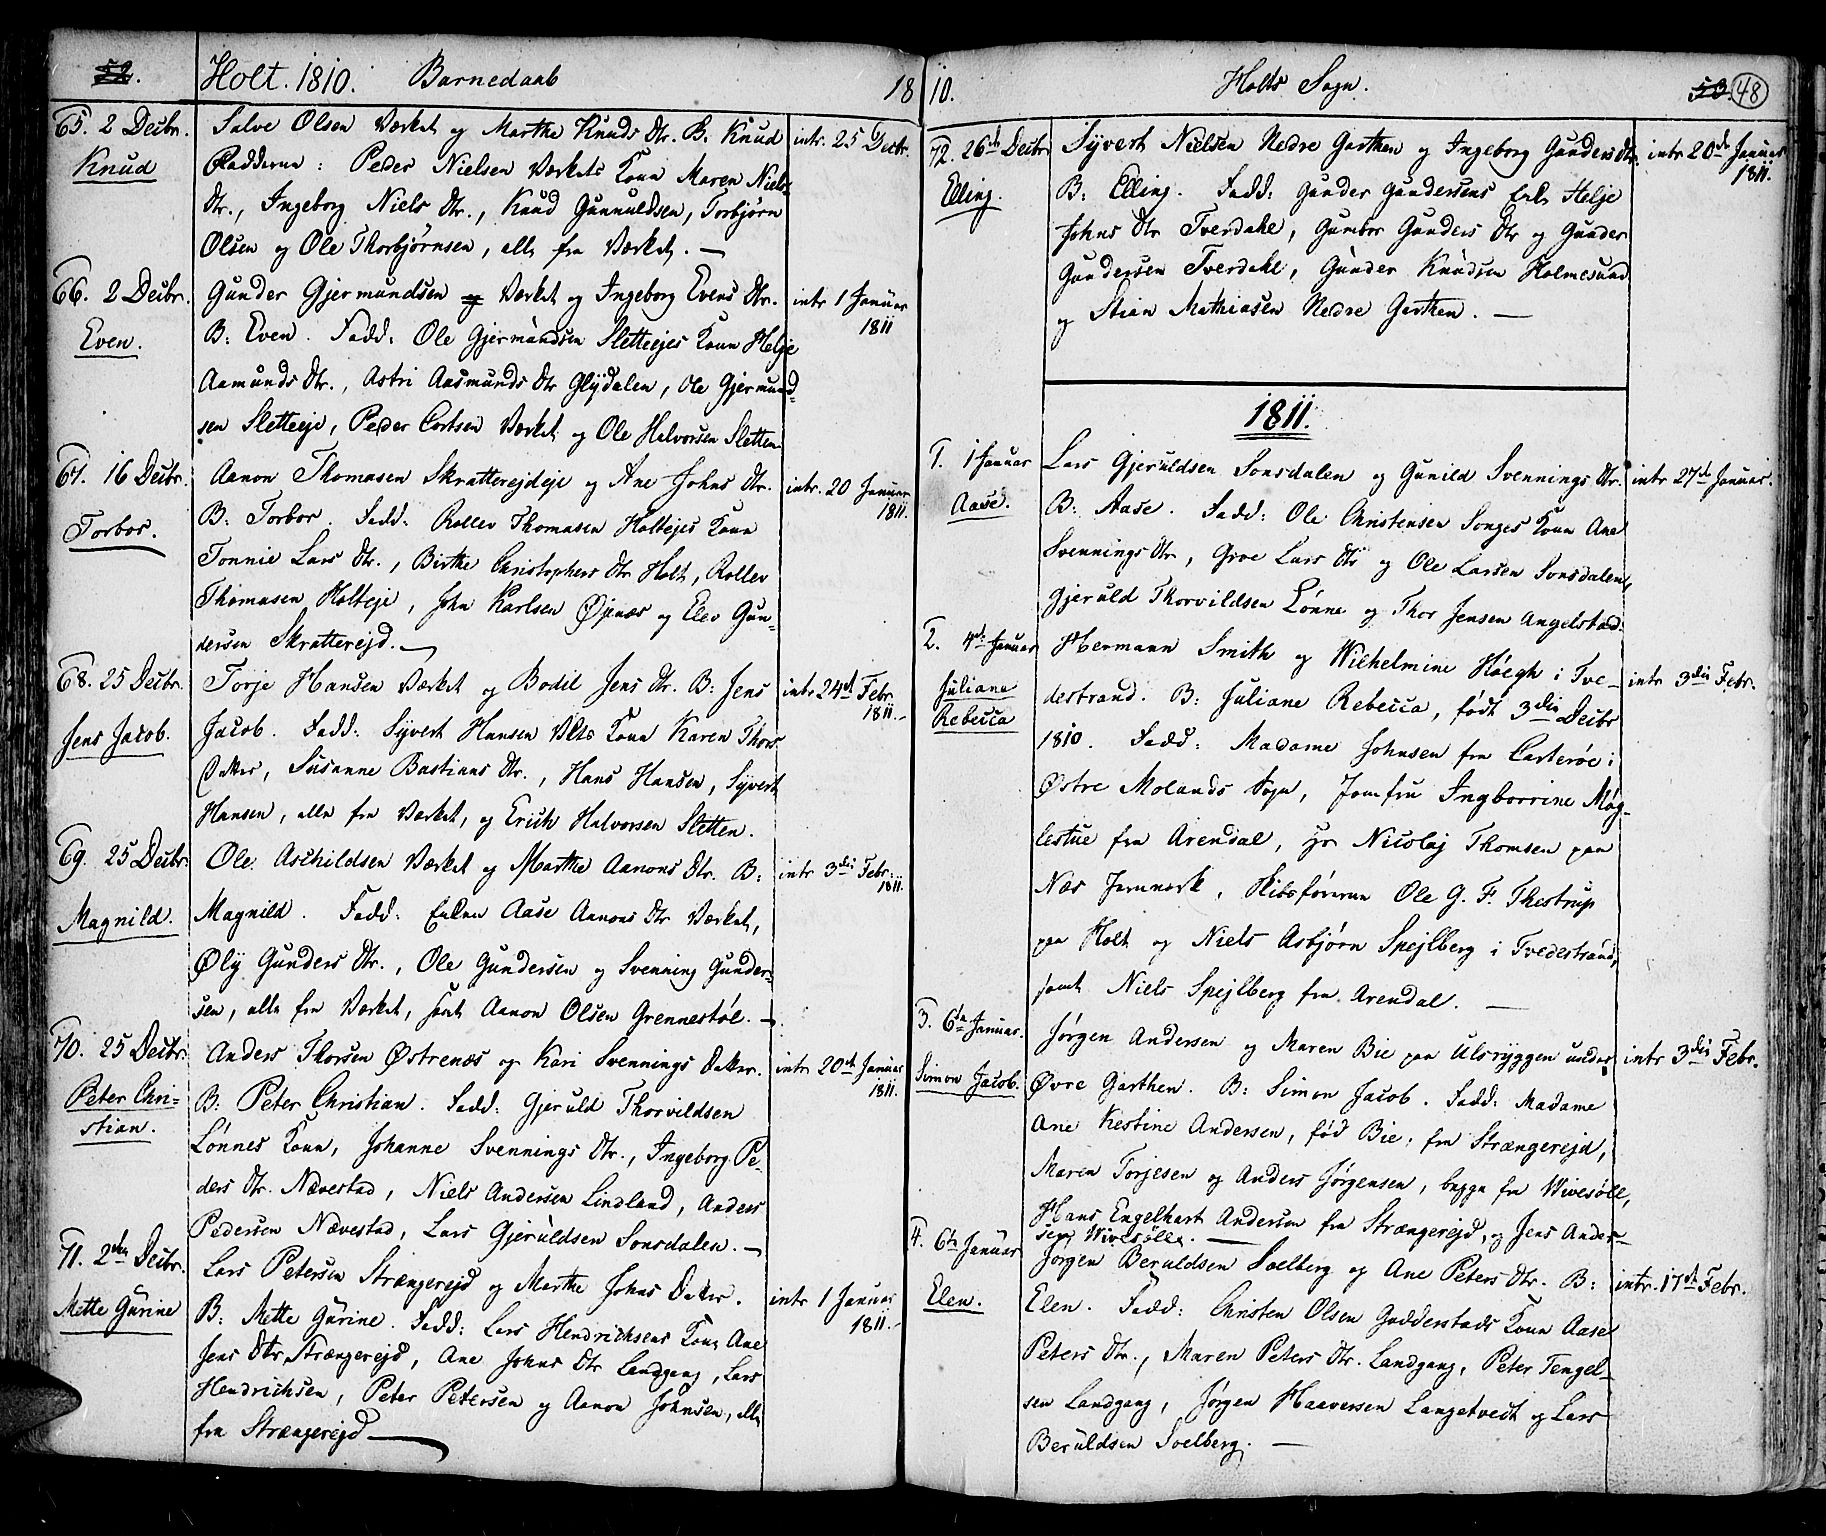 52.
Holt. 1810. Barnedaab 18
65. 2 Decbr.
Knud
Salve Olsen Værket og Marthe Knuds Dtr. B. Knud
Fadderne: Peder Nielsen Værkets Kone Maren Niels
Dtr., Ingeborg Niels Dtr., Knud Gunnuldsen, Torbjørn
Olsen og Ole Thorbjørnsen, alle fra Værket. —
intr. 25 Decbr.
66. 2 Decbr.
Even.
Gunder Gjermundsen Værket og Ingeborg Evens Dtr.
B: Even. Fadd: Ole Gjermundsen Sletteejes Kone Helje
Aamunds Dtr., Astri Aasmunds Dtr Glydalen, Ole Gjermund-
sen Sletteeje, Peder Cortsen Værket og Ole Halvorsen Sletten
intr 1 Januar
1811
67. 16 Decbr.
Torbor.
Aanon Thomasen Skratterejdeje og Ane Johns Dtr.
B: Torbor. Fadd: Rollev Thomasen Holtejes Kone
Tonnie Lars Dtr., Birthe Christophers Dtr Holt, Rollev
Thomasen Holteje, John Karlsen Øjnæs og Elev Gun-
dersen Skratterejd. —
intr. 20 Januar
1811.
68. 25 Decbr.
Jens Jacob.
Torje Hansen Værket og Bodil Jens Dtr. B: Jens
Jacob. Fadd: Syvert Hansen Vkts Kone Karen Thors
Datter, Susanne Bastians Dtr., Hans Hansen, Syvert
Hansen, alle fra Værket, og Erich Halvorsen Sletten.
intr 24de Febr.
1811.
69. 25 Decbr.
Magnild.
Ole Aschildsen Værket og Marthe Aanons Dtr. B:
Magnild. Fadd: Enken Aase Aanons Dtr Værket,
Øly Gunders Dtr., Ole Gundersen og Svenning Gunder-
sen, alle fra Værket, samt Aanon Olsen Grennestøl. —
intr 3die Febr.
1811.
70. 25 Decbr.
Peter Chri-
stian.
Anders Thorsen Østrenæs og Kari Svennings Datter.
B: Peter Christian. Fadd: Gjeruld Thorvildsen
Lønnes Kone, Johanne Svennings Dtr., Ingeborg Pe-
ders Dtr. Nævestad, Niels Andersen Lindland, Anders
Pedersen Nævestad, Lars Gjeruldsen Sonsdalen. —
intr 20de Januar
1811.
71. 2den Decbr.
Mette Gurine
Lars Petersen Strængerejd og Marthe Johns Datter.
B: Mette Gurine. Fadd: Lars Hendrichsens Kone Ane
Jens Dtr Strængerejd, Ane Johns Dtr Landgang, Lars
Hendrichsen, Peter Petersen og Aanon Johnsen, alle
fra Strængerejd —
intr 1 Januar
1811.
10. Holts Sogn. 53. 48
72. 26de Decbr.
Elling.
Syvert Nielsen Nedre Garthen og Ingeborg Gunders Dtr.
B: Elling. Fadd: Gunder Gundersens Enke Helje
Johns Dtr Tverdale, Gumbor Gunders Dtr og Gunder
Gundersen Tverdale, Gunder Knudsen Holmesund
og Stian Mathiasen Nedre Garthen. —
intr 20de Januar
1811.
1811.
1. 1 Januar
Aase.
Lars Gjeruldsen Sonsdalen og Gunild Svennings Dtr.
B: Aase. Fadd: Ole Christensen Songes Kone Ane
Svennings Dtr, Groe Lars Dtr og Ole Larsen Sonsdalen,
Gjeruld Thorvildsen Lønne og Thor Jensen Angelstad.
intr 27de Januar.
2. 4de Januar
Juliane
Rebecca
Hermann Smith og Wilhelmine Høegh i Tve-
destrand. B: Juliane Rebecca, født 3die Decbr
1810. Fadd: Madame Johnsen fra Carterøe i
Østre Molands Sogn, Jomfru Ingborrine Møg-
lestue fra Arendal, Hr Nicolaj Thomsen paa
Næs Jernværk, Skibsføreren Ole G. F. Thestrup
paa Holt og Niels Asbjørn Spejlberg i Tvedestrand,
samt Niels Spejlberg fra Arendal. —
intr 3die Febr.
3. 6te Januar.
Simon Jacob.
Jørgen Andersen og Maren Bie paa Ulsryggen under
Øvre Garthen. B: Simon Jacob. Fadd: Madame
Ane Kestine Andersen, fød Bie, fra Strængerejd,
Maren Torjesen og Anders Jørgensen, begge fra Wivesølle,
Hans Engelhart Andersen fra Strængerejd, og Jens Ander-
sen, Wivesølle. —
intr 3die Febr.
4. 6te Januar
Elen.
Jørgen Beruldsen Soelberg og Ane Peters Dtr. B:
Elen. Fadd: Christen Olsen Godderstads Kone Aase
Peters Dtr., Maren Peters Dtr. Landgang, Peter Tengel-
sen Landgang, Jørgen Haaversen Langetvedt og Lars
Beruldsen Soelberg. —
intr. 17de Febr.